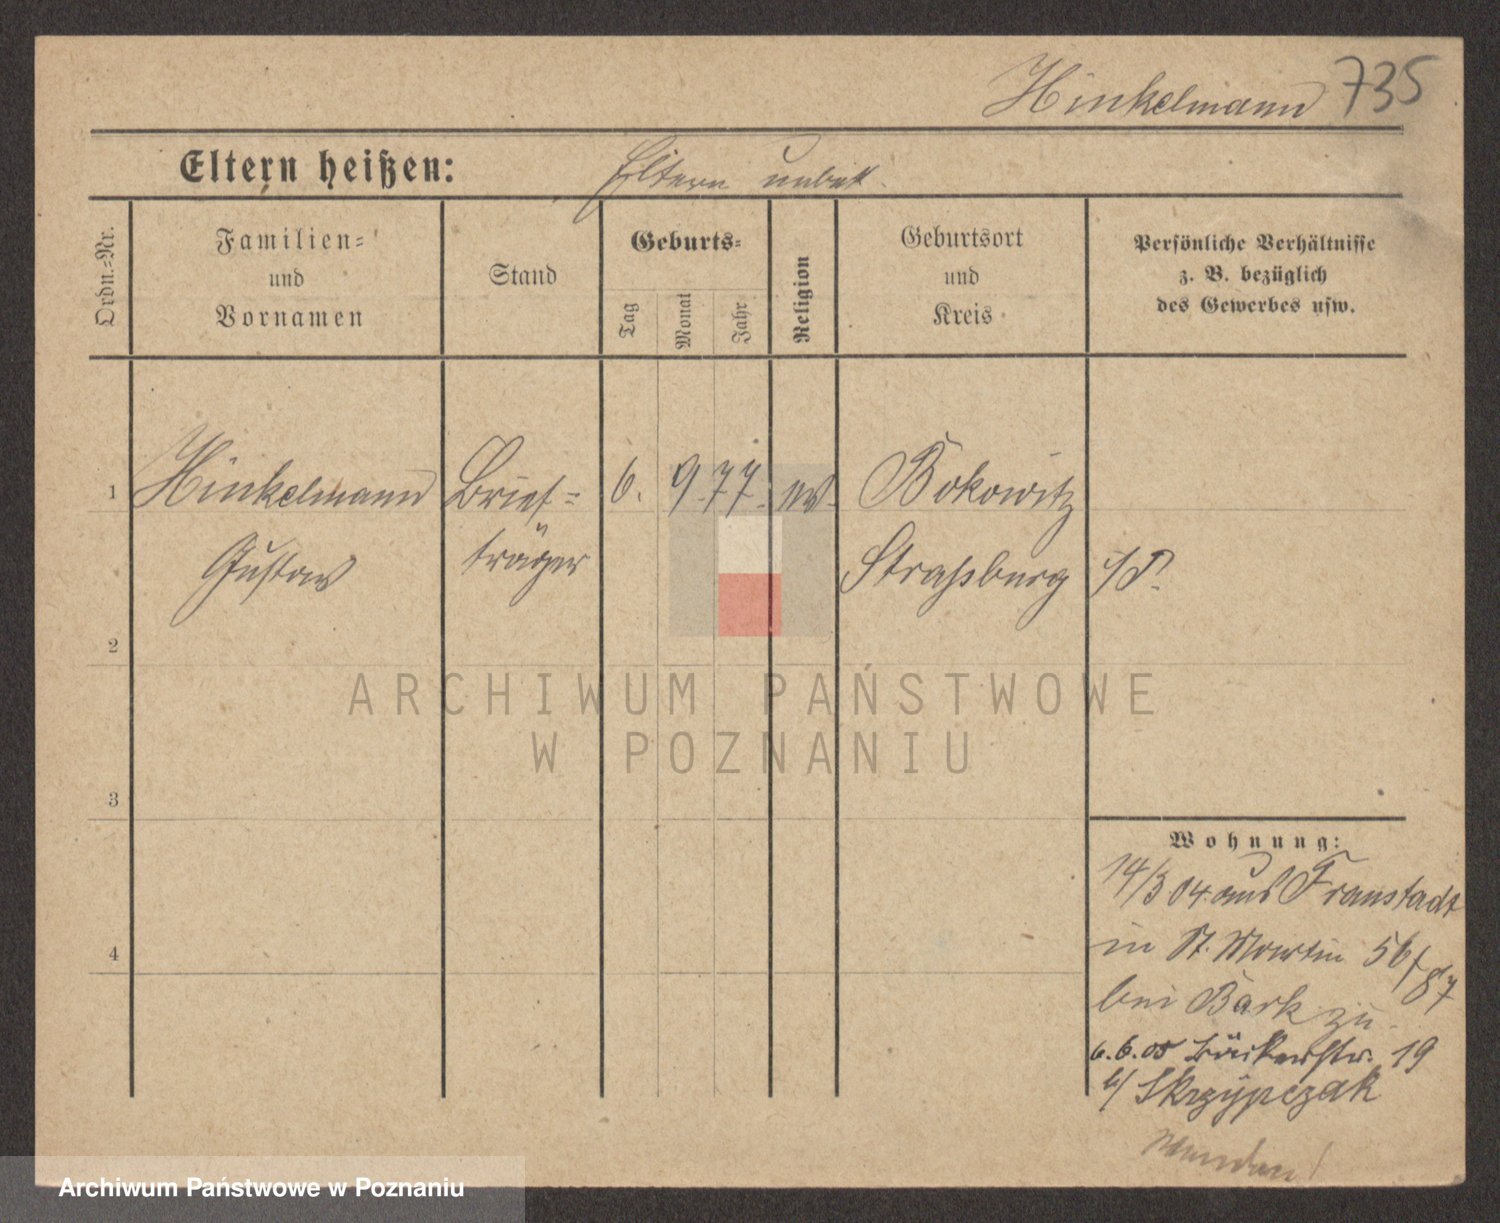 Hinkelmann 735
Eltern heißen: Eltern unbek.
Ordn.-Nr.
Familien-
und
Vornamen
Stand
Geburts-
Tag
Monat
Jahr
Religion
Geburtsort
und
Kreis
Persönliche Verhältnisse
z. B. bezüglich
des Gewerbes usw.
1 Hinkelmann Brief= 6. 9. 77. ev. Bokowitz
Gustav träger Straßburg
2
ARCHIWUM PAŃSTWOWE
W POZNANIU
3
Wohnung:
14/3 04. aus Fraustadt
in St. Martin 56/87
bei Bark zu.
6.6.05 Bäckerstr. 19
b/ Skrzypczak
4
Archiwum Państwowe w Poznaniu